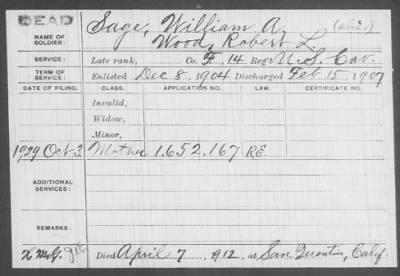 DEAD
Sage, William A.
NAME OF SOLDIER: Wood, Robert L. (alias)
SERVICE: Late rank, Co. F, 14 Reg't U. S. Cav.
TERM OF SERVICE: Enlisted Dec 8, 1904 Discharged Feb. 15, 1907
DATE OF FILING. CLASS. APPLICATION NO. LAW. CERTIFICATE NO.
Invalid,
Widow,
Minor,
1929 Oct 3 Mother 1.652.167 RE
ADDITIONAL SERVICES:
REMARKS:
Died April 7 1912, at San Quentin, Calif.